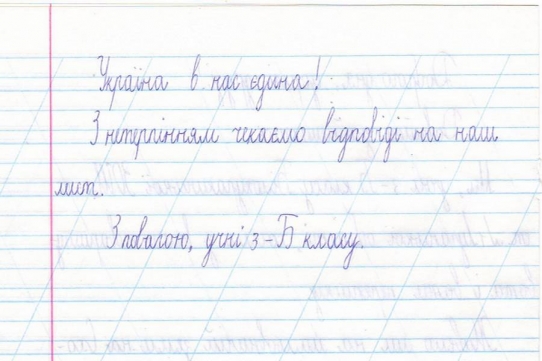 Україна в нас єдина!
З нетерпінням чекаємо відповіді на наш
лист.
З повагою, учні 3-Б класу.